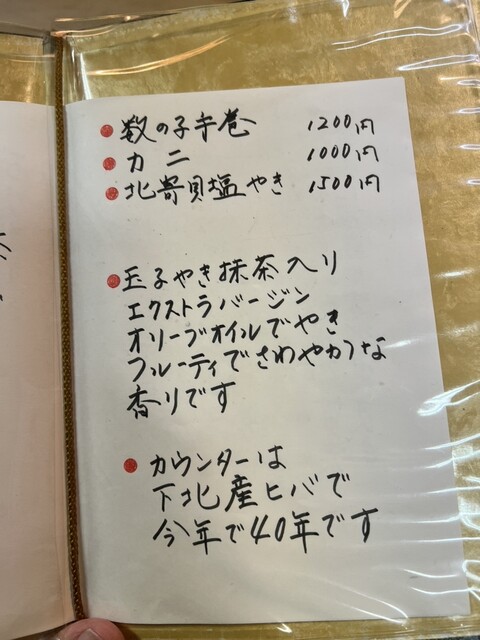 数の子手巻 1200円
カニ 1000円
北寄貝塩やき 1500円
玉子やき抹茶入り
エクストラバージン
オリーブオイルでやき
フルーティでさわやかな
香りです
カウンターは
下北産ヒバで
今年で40年です